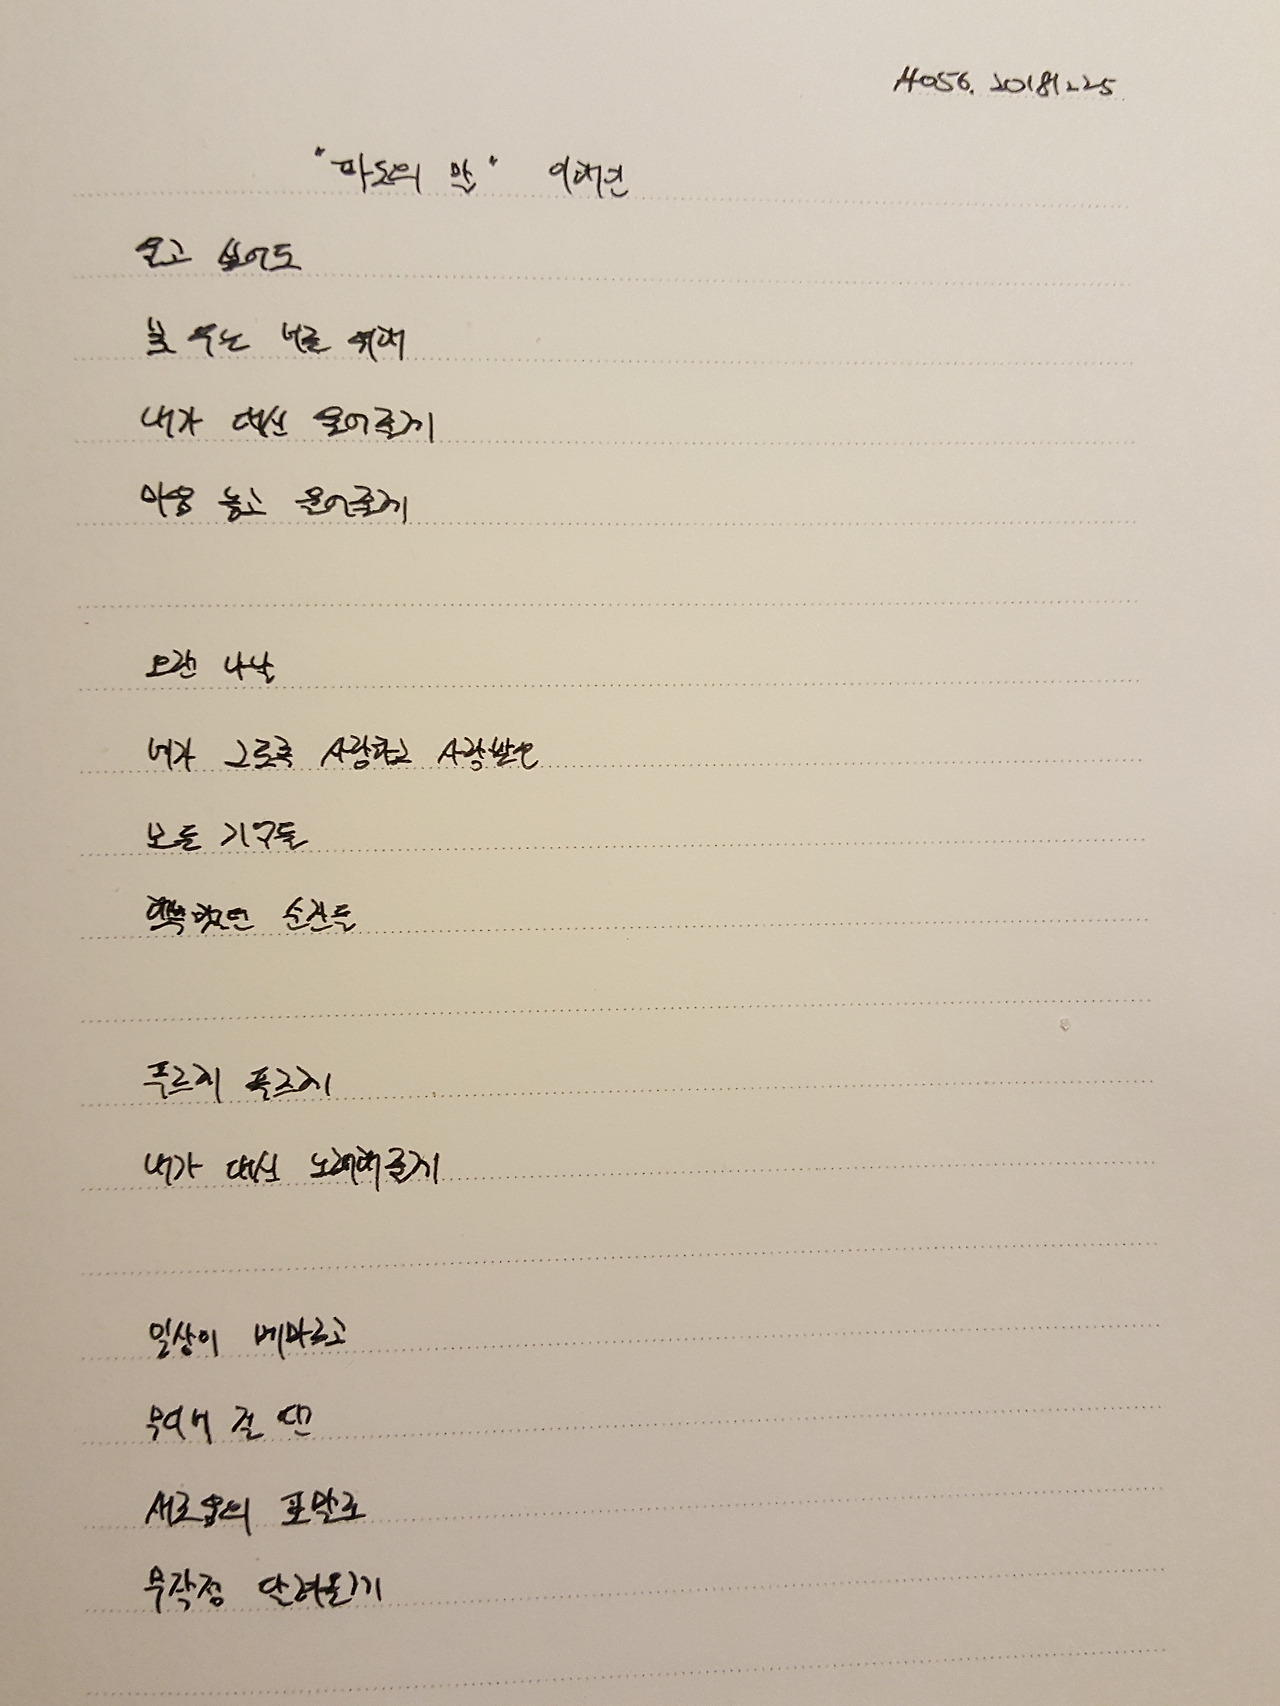 #056. 20181225
"파도의 말" 이해인
울고 싶어도
못 우는 너를 위해
내가 대신 울어줄게
마음 놓고 울어줄게
오랜 나날
네가 그토록 사랑하고 사랑받은
모든 기억들
행복했던 순간들
푸르게 푸르게
내가 대신 노래해줄게
일상이 메마르고
무디어 질 땐
새로움의 포말로
무작정 달려올게